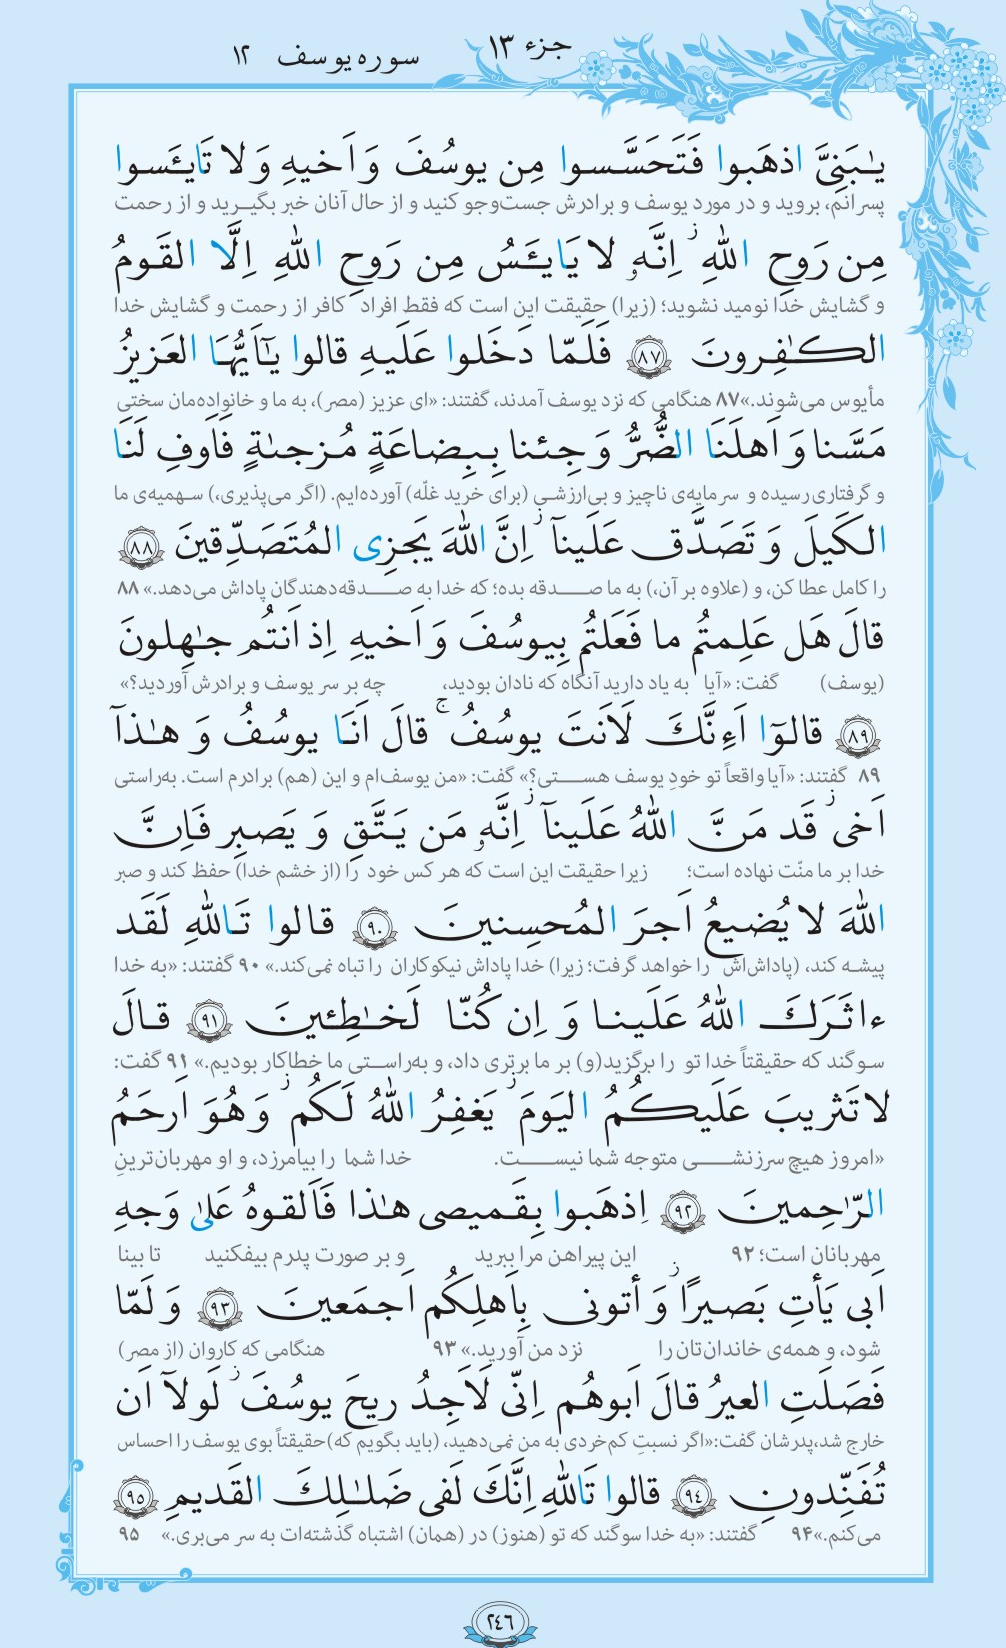 جزء ۱۳
سوره یوسف ۱۲
یـٰبَنِیَّ اذهَبوا فَتَحَسَّسوا مِن یوسُفَ وَ اَخیهِ وَ لا تَایـَٔسوا
پسرانم، بروید و در مورد یوسف و برادرش جست‌وجو کنید و از حال آنان خبر بگیـرید و از رحمت
مِن رَوحِ اللّٰهِ ۖز اِنَّهٗ لا یَایـَٔسُ مِن رَوحِ اللّٰهِ اِلَّا القَومُ
و گشایش خدا نومید نشوید؛ (زیرا) حقیقت این است که فقط افراد کافر از رحمت و گشایش خدا
الکـٰفِرونَ ﴿۸۷﴾ فَلَمّا دَخَلوا عَلَیهِ قالوا یـٰٓاَیُّهَا العَزیزُ
مأیوس می‌شوند.»۸۷ هنگامی که نزد یوسف آمدند، گفتند: «ای عزیز (مصر)، به ما و خانواده‌مان سختی
مَسَّنا وَ اَهلَنَا الضُّرُّ وَ جِئنا بِبِضاعَةٍ مُزجىٰةٍ فَاَوفِ لَنَا
و گرفتاری رسیده و سرمایه‌ی ناچیز و بی‌ارزشـی (برای خرید غلّه) آورده‌ایم. (اگر می‌پذیری،) سـهمیه‌ی ما
الکَیلَ وَ تَصَدَّق عَلَیناۤ ز اِنَّ اللّٰهَ یَجزِی المُتَصَدِّقینَ ﴿۸۸﴾
را کامل عطا کن، و (علاوه بر آن،) به ما صـدقه بده؛ که خدا به صـدقه‌دهندگان پاداش می‌دهد.» ۸۸
قالَ هَل عَلِمتُم ما فَعَلتُم بِیوسُفَ وَ اَخیهِ اِذ اَنتُم جـٰهِلونَ
(یوسف) گفت: «آیا به یاد دارید آنگاه که نادان بودید، چه بر سر یوسف و برادرش آوردید؟»
﴿۸۹﴾ قالوۤا اَءِنَّكَ لَاَنتَ یوسُفُ ج قالَ اَنَا یوسُفُ وَ هـٰذاۤ
۸۹ گفتند: «آیا واقعاً تو خودِ یوسف هستـی؟» گفت: «من یوسف‌ام و این (هم) برادرم است. به‌راستی
اَخی ز قَد مَنَّ اللّٰهُ عَلَیناۤ ز اِنَّهٗ مَن یَتَّقِ وَ یَصبِر فَاِنَّ
خدا بر ما منّت نهاده است؛ زیرا حقیقت این است که هر کس خود را (از خشم خدا) حفظ کند و صبر
اللّٰهَ لا یُضیعُ اَجرَ المُحسِنینَ ﴿۹۰﴾ قالوا تَاللّٰهِ لَقَد
پیشـه کند، (پاداش‌اش را خواهد گرفت؛ زیرا) خدا پاداش نیکوکاران را تباه نمی‌کند.» ۹۰ گفتند: «به خدا
ءاثَرَكَ اللّٰهُ عَلَینا وَ اِن کُنّا لَخـٰطِئینَ ﴿۹۱﴾ قالَ
سـوگند که حقیقتاً خدا تو را برگزید(و) بر ما برتری داد، و به‌راسـتی ما خطاکار بودیم.» ۹۱ گفت:
لا تَثریبَ عَلَیکُمُ الیَومَ ز یَغفِرُ اللّٰهُ لَکُم ز وَ هُوَ اَرحَمُ
«امروز هیچ سرزنشـی متوجه شما نیسـت. خدا شما را بیامرزد، و او مهربان‌ترینِ
الرّٰحِمینَ ﴿۹۲﴾ اِذهَبوا بِقَمیصی هـٰذا فَاَلقوهُ عَلىٰ وَجهِ
مهربانان است؛ ۹۲ این پیراهن مرا ببرید و بر صورت پدرم بیفکنید تا بینا
اَبی یَأتِ بَصیرًا ز وَ أتونی بِاَهلِکُم اَجمَعینَ ﴿۹۳﴾ وَ لَمّا
شود، و همه‌ی خاندان‌تان را نزد من آورید.» ۹۳ هنگامی که کاروان (از مصر)
فَصَلَتِ العیرُ قالَ اَبوهُم اِنّی لَاَجِدُ ریحَ یوسُفَ ز لَولاۤ اَن
خارج شد،پدرشان گفت:«اگر نسبتِ کم‌خردی به من نمی‌دهید، (باید بگویم که)حقیقتاً بوی یوسف را احساس
تُفَنِّدونِ ﴿۹۴﴾ قالوا تَاللّٰهِ اِنَّكَ لَفی ضَلـٰلِكَ القَدیمِ ﴿۹۵﴾
می‌کنم.»۹۴ گفتند: «به خدا سوگند که تو (هنوز) در (همان) اشتباه گذشته‌ات به سر می‌بری.» ۹۵
۲۴۶